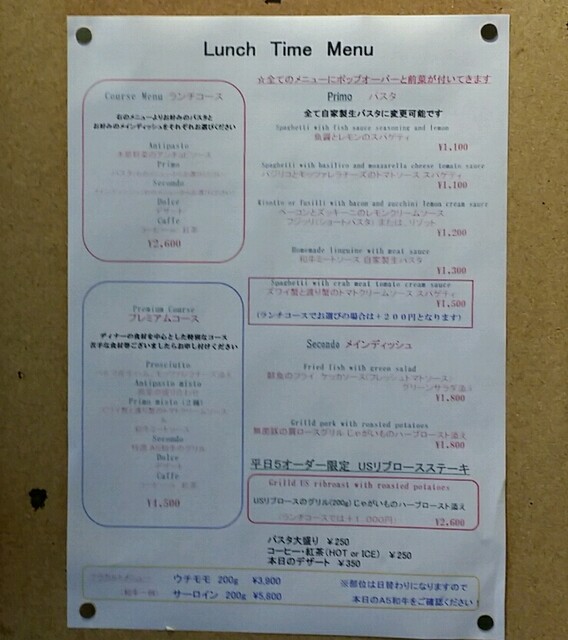 Lunch Time Menu
Course Menu ランチコース
右のメニューよりお好みのパスタと
お好みのメインディッシュをそれぞれお選びください
Antipasto
Primo
Secondo
Dolce
デザート
Caffe
コーヒー or 紅茶
¥2,600
Premium Course
プレミアムコース
ディナーの食材を中心とした特別なコース
苦手な食材等ございましたらお申し付けください
Prosciutto
Antipasto misto
前菜の盛り合わせ
Primo misto (2種)
ズワイ蟹と渡り蟹のトマトクリームソース
&
和牛ミートソース
Secondo
Dolce
デザート
Caffe
コーヒー or 紅茶
☆全てのメニューにポップオーバーと前菜が付いてきます
Primo パスタ
全て自家製生パスタに変更可能です
Spaghetti with fish sauce seasoning and lemon
魚醤とレモンのスパゲティ
¥1,100
Spaghetti with basilico and mozzarella cheese tomato sauce
バジリコとモッツァレラチーズのトマトソース スパゲティ
¥1,100
Risotto or fusilli with bacon and zucchini lemon cream sauce
ベーコンとズッキーニのレモンクリームソース
フジッリ(ショートパスタ) または、リゾット
¥1,200
Homemade linguine with meat sauce
和牛ミートソース 自家製生パスタ
¥1,300
Spaghetti with crab meat tomato cream sauce
ズワイ蟹と渡り蟹のトマトクリームソース スパゲティ
¥1,500
(ランチコースでお選びの場合は+200円となります)
Secondo メインディッシュ
Fried fish with green salad
鮮魚のフライ ケッカソース(フレッシュトマトソース)
グリーンサラダ添え
¥1,800
Grilld pork with roasted potatoes
豚の肩ロースグリル じゃがいものハーブロースト添え
¥1,800
平日5オーダー限定 USリブロースステーキ
Grilld US ribroast with roasted potatoes
USリブロースのグリル(200g) じゃがいものハーブロースト添え
(ランチコースでは+1,000円)
¥2,600
パスタ大盛り ¥250
コーヒー・紅茶(HOT or ICE) ¥250
本日のデザート ¥350
ウチモモ 200g ¥3,900
サーロイン 200g ¥5,800
※部位は日替わりになりますので
本日のA5和牛をご確認ください